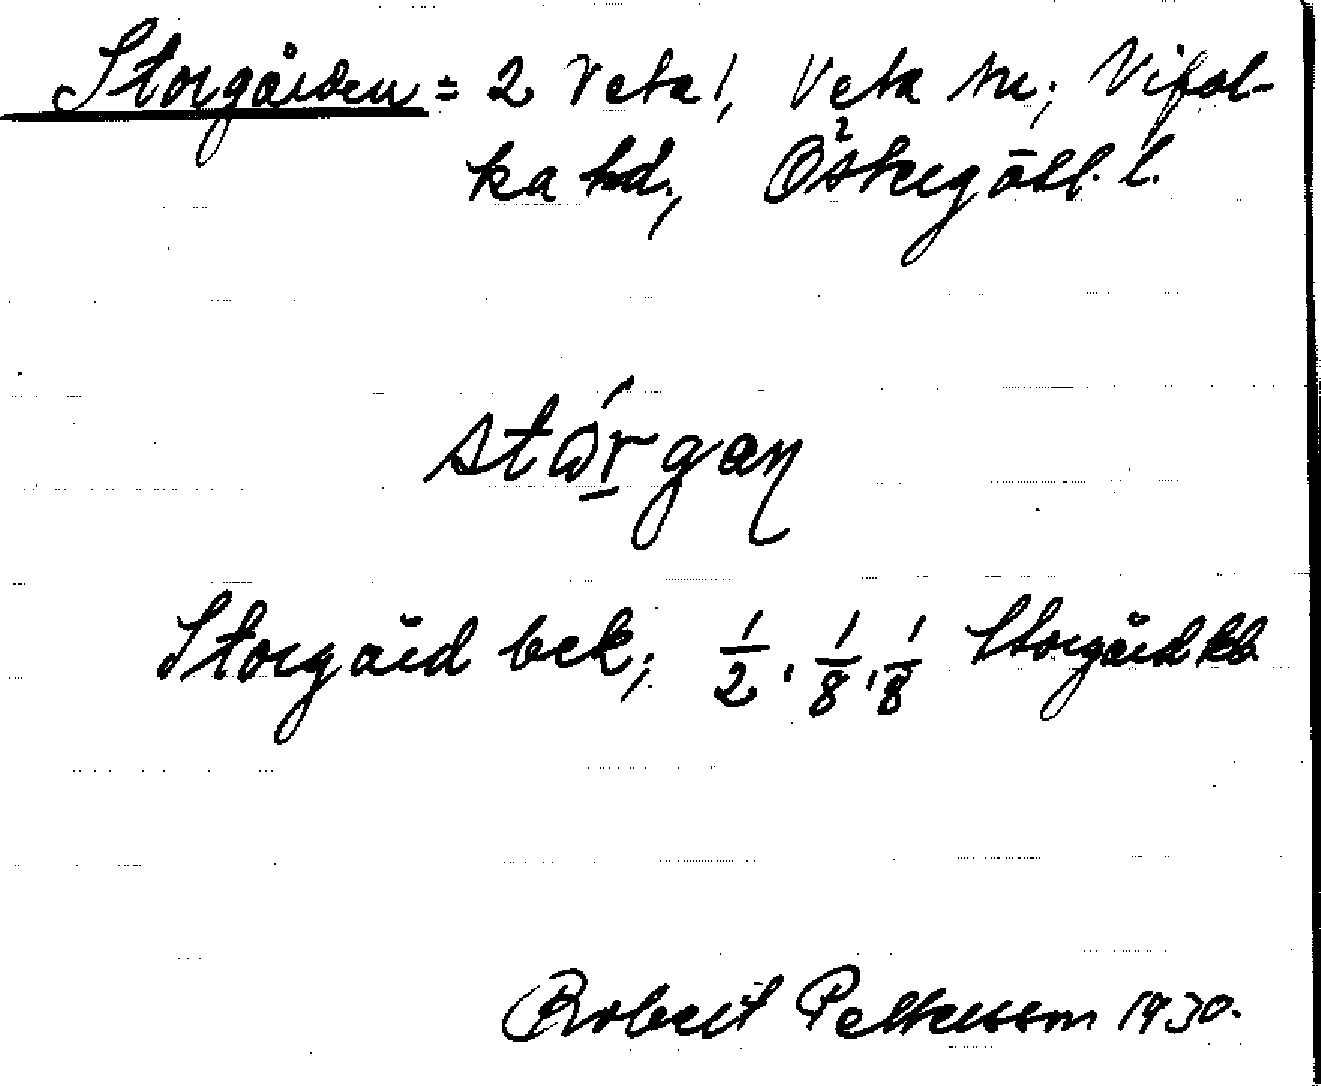 Storgården = 2 Veta 1, Veta sn; Vifol-
ka hd, Östergötl. l.
stɷ́rgaɳ
Storgård bek; 1/2, 1/8, 1/8 Storgård kb.
Robert Pettersson 1930.